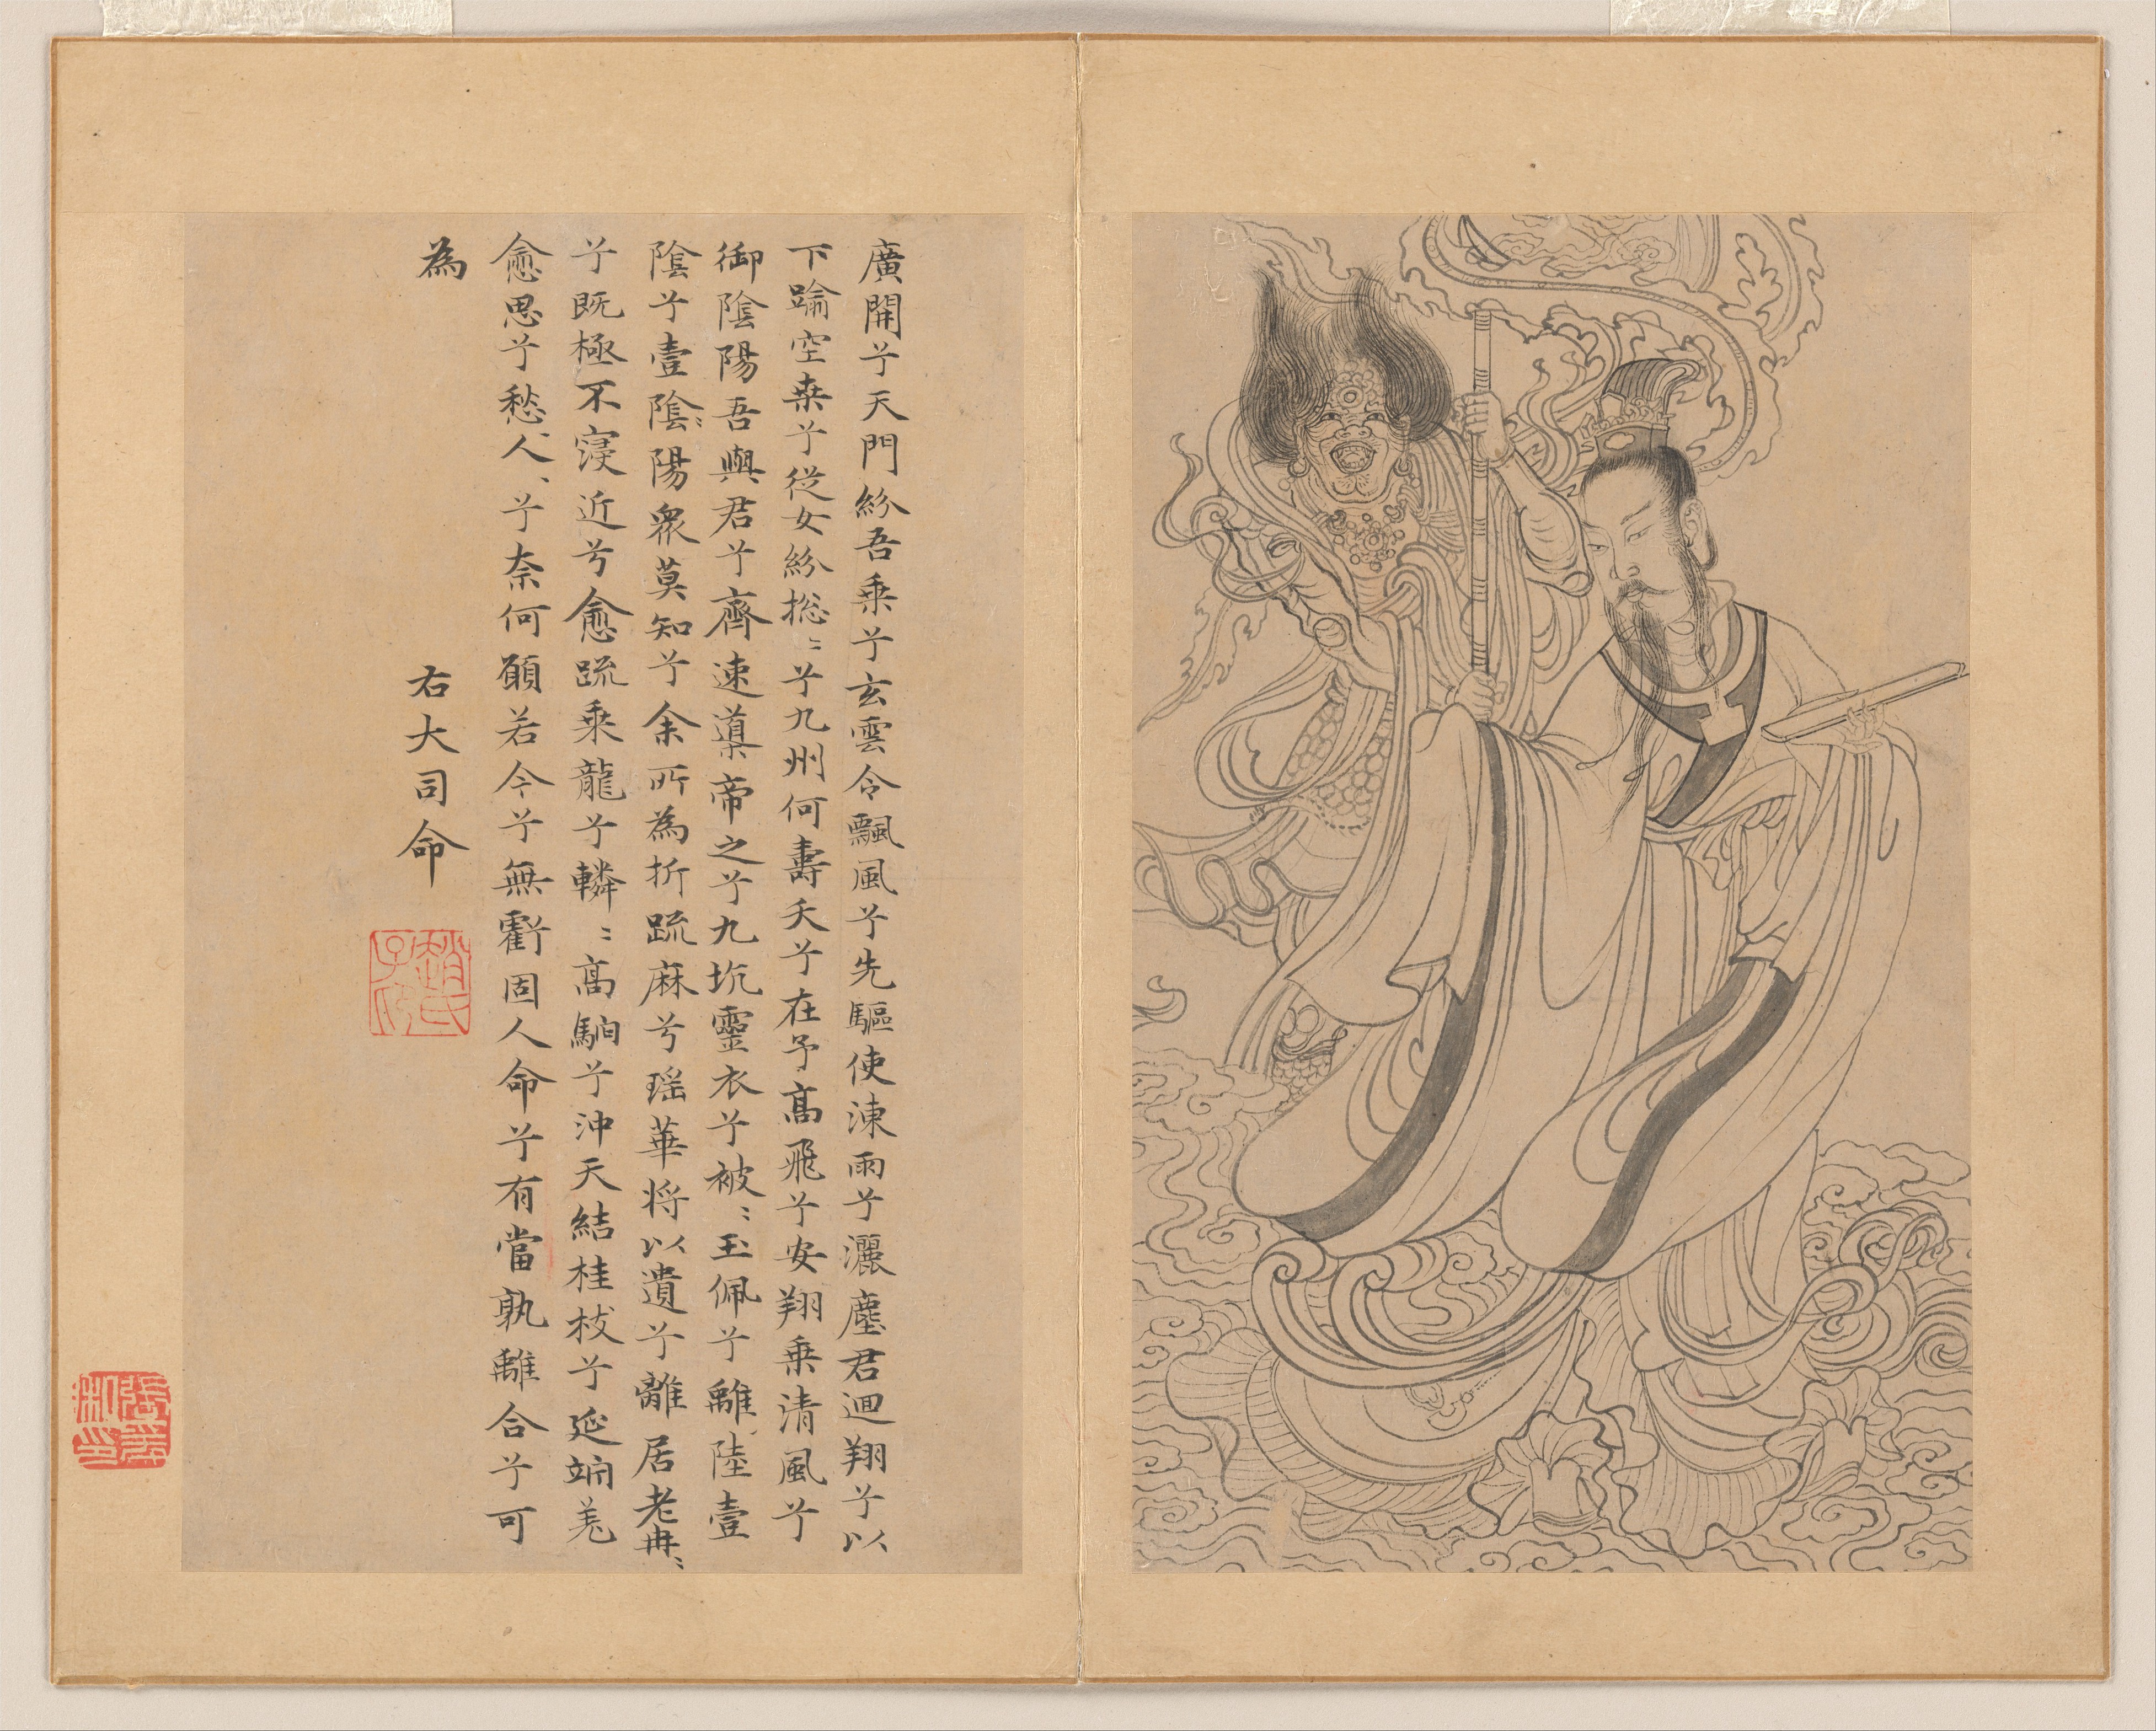 廣開兮天門紛吾乘兮玄雲令飄風兮先驅使涷雨兮灑塵君迴翔兮以
下踰空桑兮從女紛揔〻兮九州何壽夭兮在予高飛兮安翔乘清風兮
御陰陽吾與君兮齊速導帝之兮九坑靈衣兮被〻玉佩兮離陸壹
陰兮壹陰〻陽衆莫知兮余所為折䟽麻兮瑶華將以遺兮離居老冉〻
兮既極不寖近兮愈䟽乘龍兮轔〻高駒兮沖天結桂枝兮延竚羌
愈思兮愁人〻兮奈何願若今兮無虧固人命兮有當孰離合兮可
為
右大司命
趙氏子昂